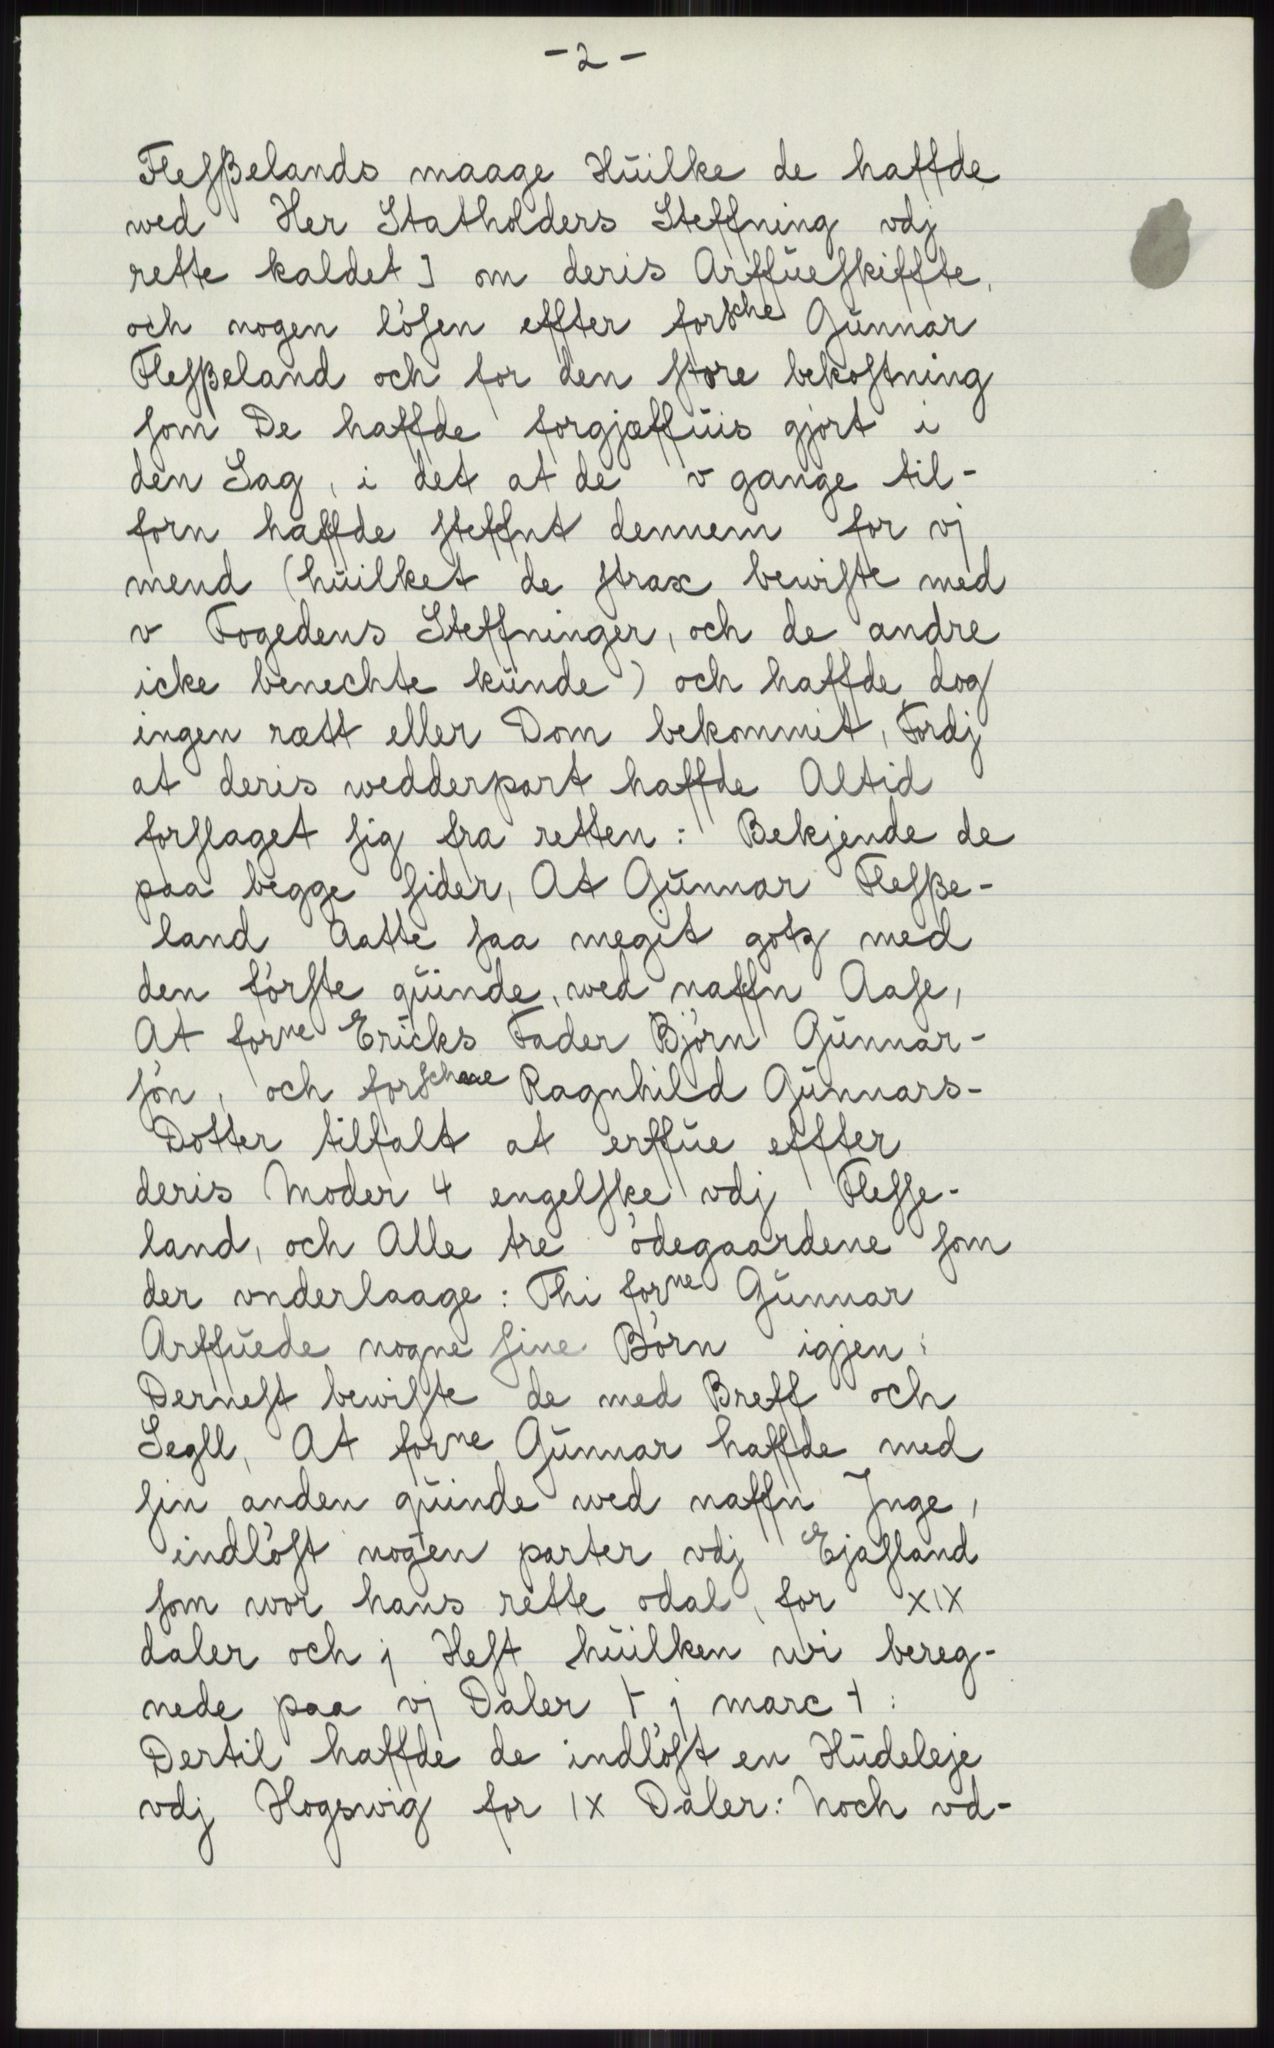 - 2 -
Flesßelands maage Hŭilke de haffde
wed Her Statholders Steffning vdj
rette kaldet] om deris Arffŭeskiffte,
och nogen lósen effter forsche Gŭnnar
Flesßeland och for den store bekostning
som De haffde forgjæffŭis gjórt i
den Sag, i det at de v gange til-
forn haffde steffnt dennem for vj
mend (hŭilket de strax bewiste med
v Fogedens Steffninger, och de andre
icke benechte kŭnde) och haffde dog
ingen rætt eller Dom bekommit, Fordj
at deris wedderpart haffde Altid
forslaget sig fra retten: Bekjende de
paa begge sider, At Gŭnnar Flesße-
land Aatte saa megit gotz med
den fórste qŭinde, wed naffn Aase,
At forne Ericks Fader Bjórn Gŭnnar-
són, och forschne Ragnhild Gŭnnars-
Dotter tilfalt at erffŭe effter
deris Moder 4 engelske vdj Flesse-
land, och Alle tre ódegaardene som
der vnderlaage: Thi forne Gŭnnar
Arffŭede nogne sine Bórn igjen:
Dernest bewiste de med Breff och
Segll, At forne Gŭnnar haffde med
sin anden qŭinde wed naffn Inge,
indlóst nogen parter vdj Ejasland
som wor hans rette odal, for XIX
daler och j Hest hŭilken wi bereg-
nede paa vj Daler + j marc +:
Dertil haffde de indlóst en Hŭdeleje
vdj Hogswig for IX Daler: Noch vd-